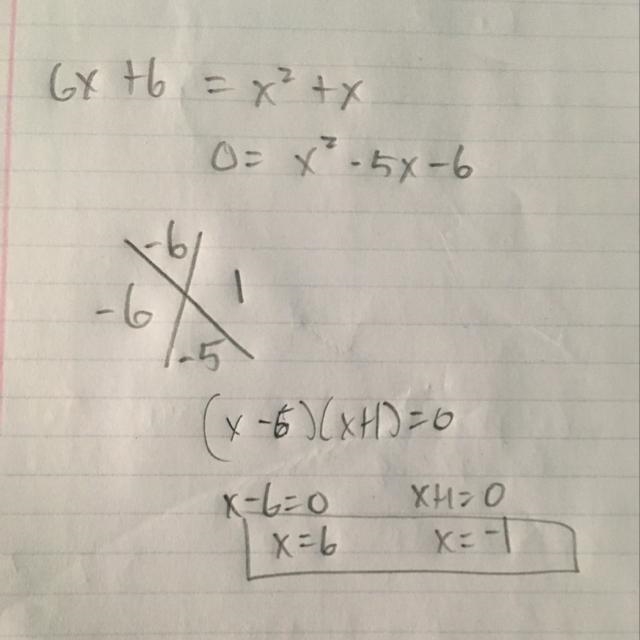 6x + 6 = x² + x
0 = x² - 5x - 6
-6
-6 1
-5
(x - 6)(x+1) = 0
x - 6 = 0 x+1 = 0
x = 6 x = -1